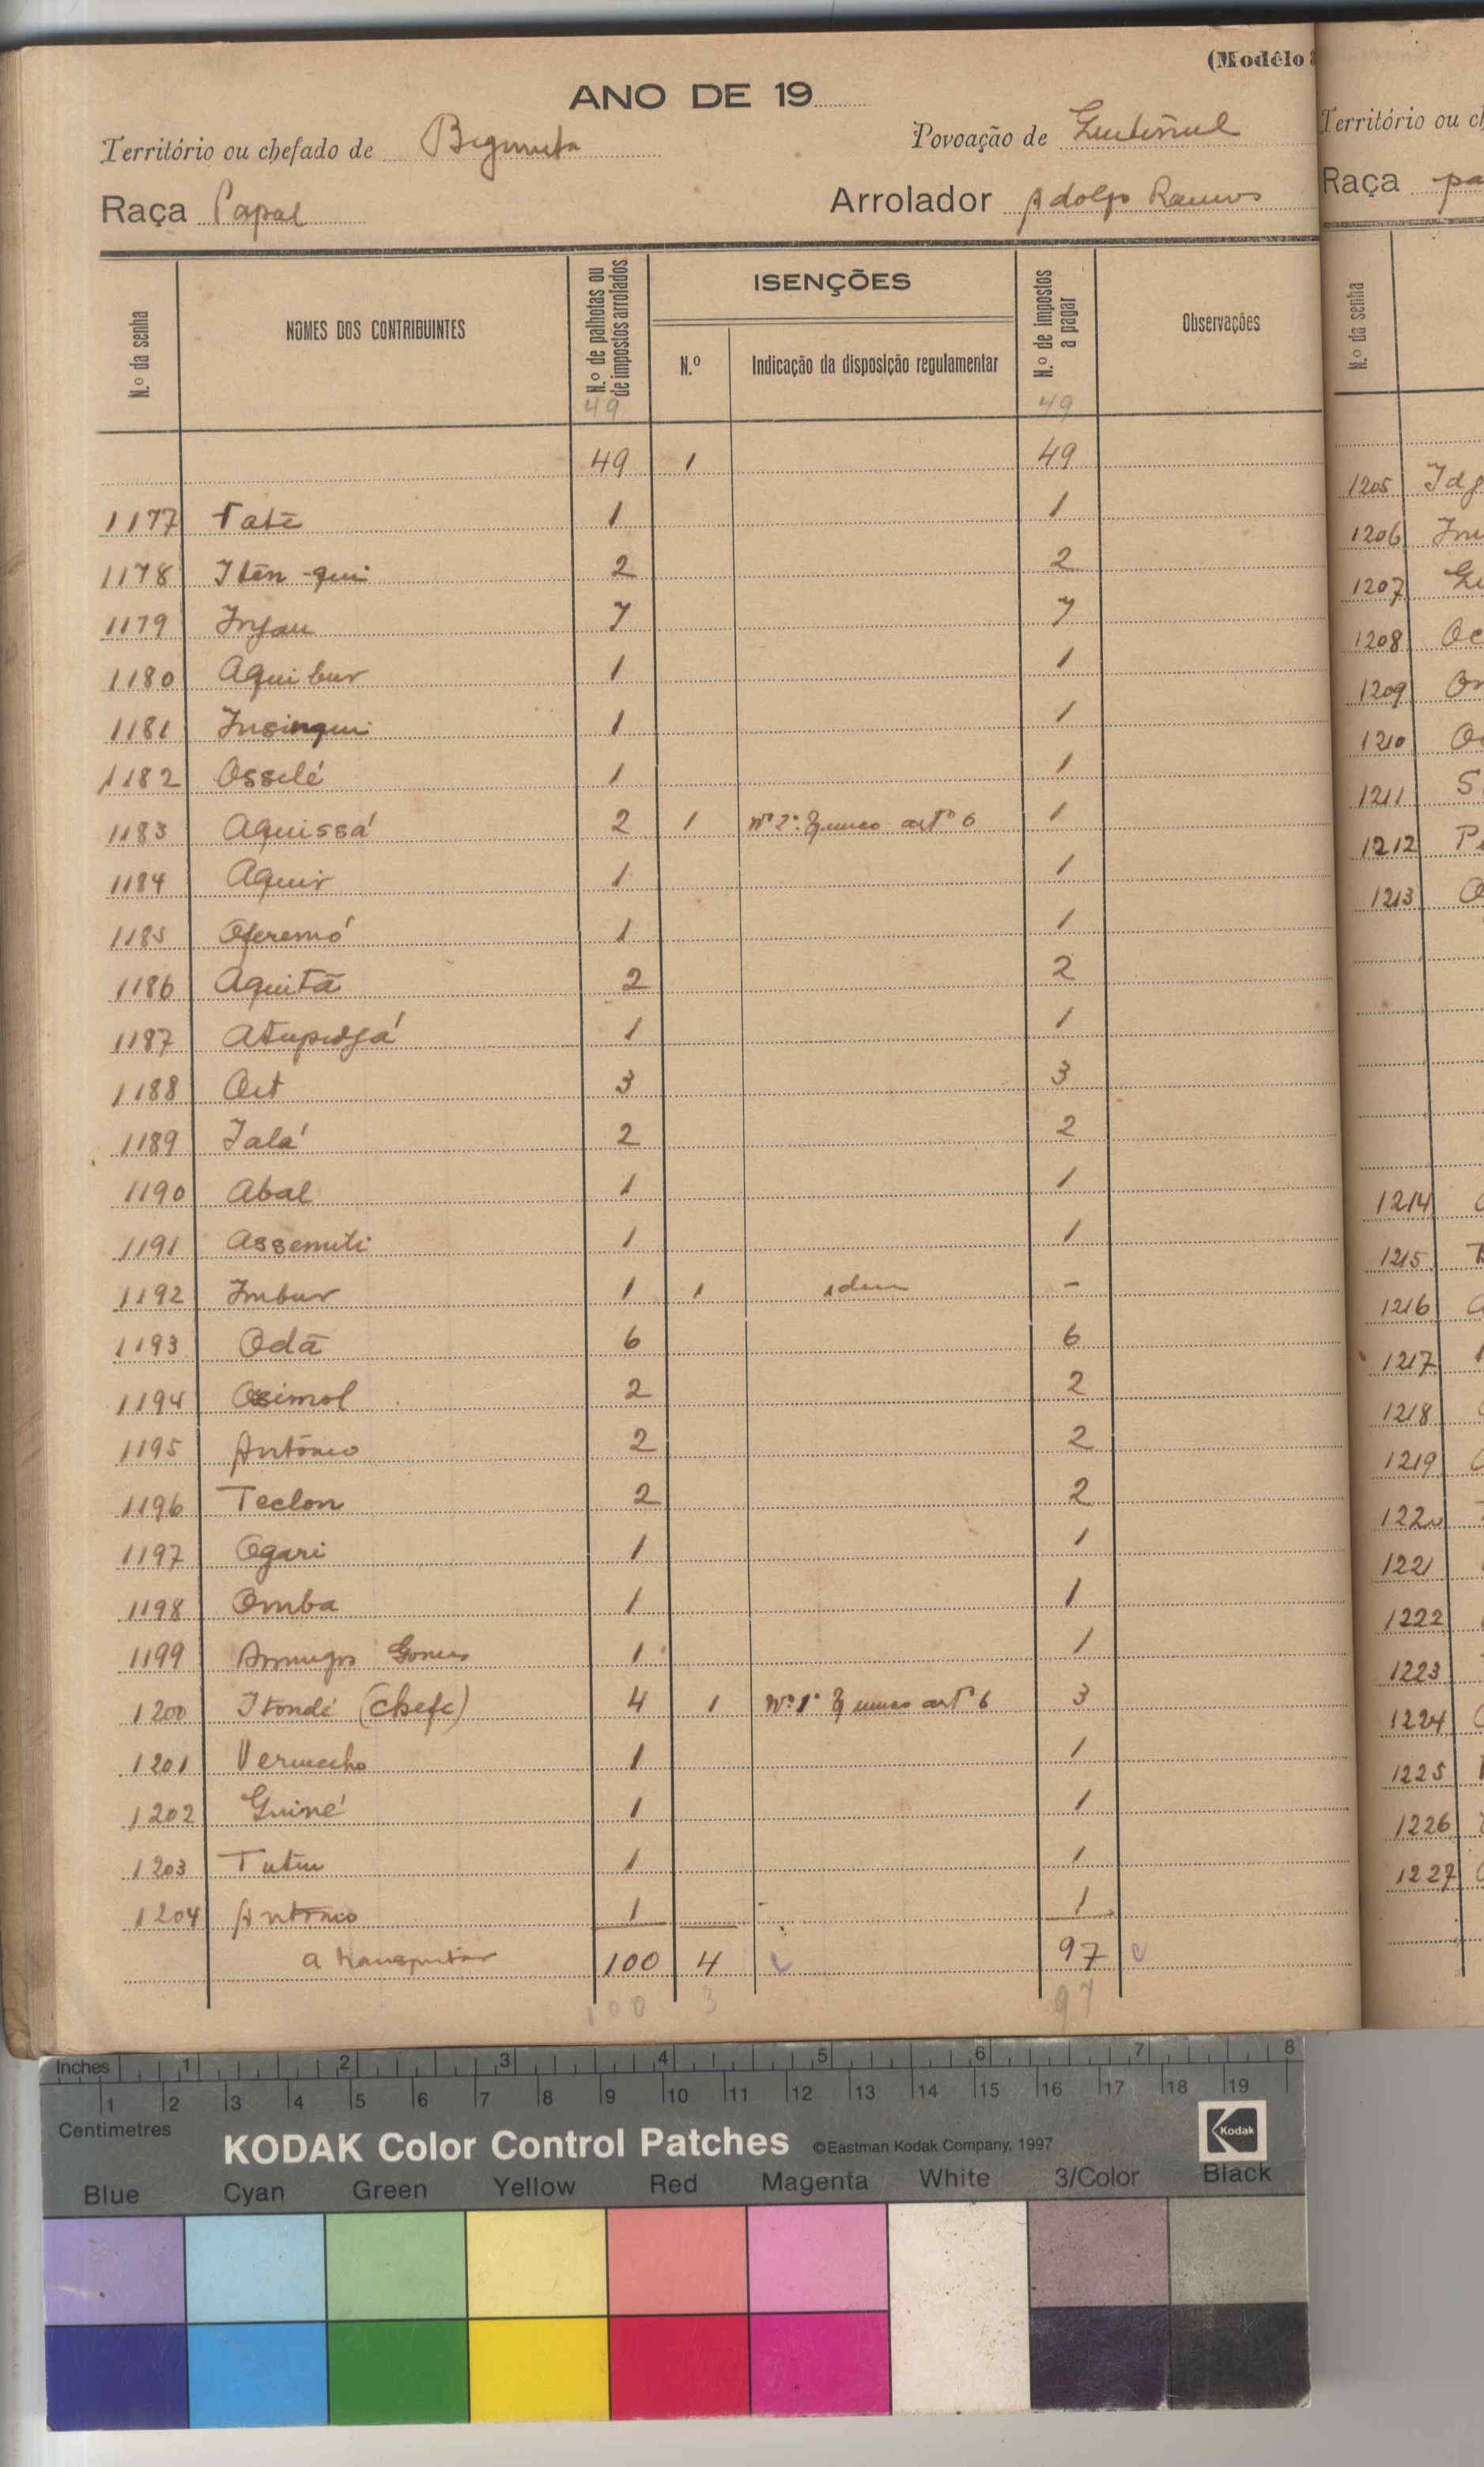 (Modêlo
ANO DE 19
Território ou chefado de Povoação de
Raça Papal Arrolador Adolfo Ramos
N.º da senha NOMES DOS CONTRIBUINTES N.º de palhotas ou de impostos arrolados ISENÇÕES N.º Indicação da disposição regulamentar N.º de impostos a pagar Observações
49 49
49 1 49
1177 Tatè 1 1
1178 2 2
1179 7 7
1180 Aquibur 1 1
1181 Insinqui 1 1
1182 Ossilé 1 1
1183 Aquissá 2 1 Nº 2º § unico artº 6 1
1184 Aquir 1 1
1185 1 1
1186 Aquitã 2 2
1187 1 1
1188 3 3
1189 Ialá 2 2
1190 Abal 1 1
1191 1 1
1192 Imbur 1 1 idem -
1193 Odã 6 6
1194 2 2
1195 António 2 2
1196 Teclon 2 2
1197 Ogari 1 1
1198 Omba 1 1
1199 Gomes 1 1
1200 Itondé (Chefe) 4 1 Nº 1º § unico artº 6 3
1201 1 1
1202 Guiné 1 1
1203 1 1
1204 António 1 1
a transportar 100 4 97
100 3 97
Território ou
Raça
N.º da senha
1205
1206
1207
1208
1209
1210
1211
1212
1213
1214
1215
1216
1217
1218
1219
1220
1221
1222
1223
1224
1225
1226
1227
Inches 1 2 3 4 5 6 7 8
1 2 3 4 5 6 7 8 9 10 11 12 13 14 15 16 17 18 19
Centimetres
KODAK Color Control Patches ©Eastman Kodak Company, 1997 Kodak
Blue Cyan Green Yellow Red Magenta White 3/Color Black